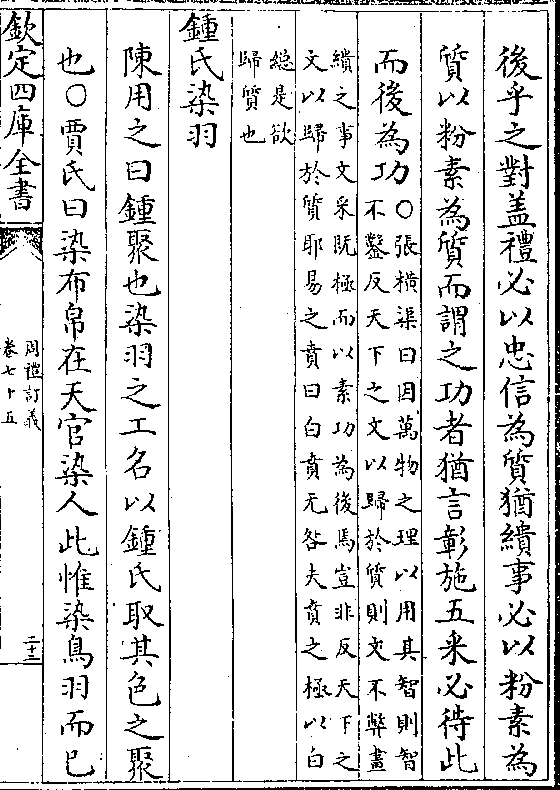 後乎之對盖禮必以忠信為質猶繢事必以粉素為
質以粉素為質而謂之功者猶言彰施五采必待此
而後為功○張横渠曰因萬物之理以用其智則智
不鑿反天下之文以歸於質則文不弊畫
繢之事文采既極而以素功為後焉豈非反天下之
文以歸於質耶易之賁曰白賁无咎夫賁之極以白
總是欲
歸質也
鍾氏染羽
陳用之曰鍾聚也染羽之工名以鍾氏取其色之聚
也○賈氏曰染布帛在天官染人此惟染鳥羽而已
欽定四庫全書
周禮訂義
卷七十五
二十三